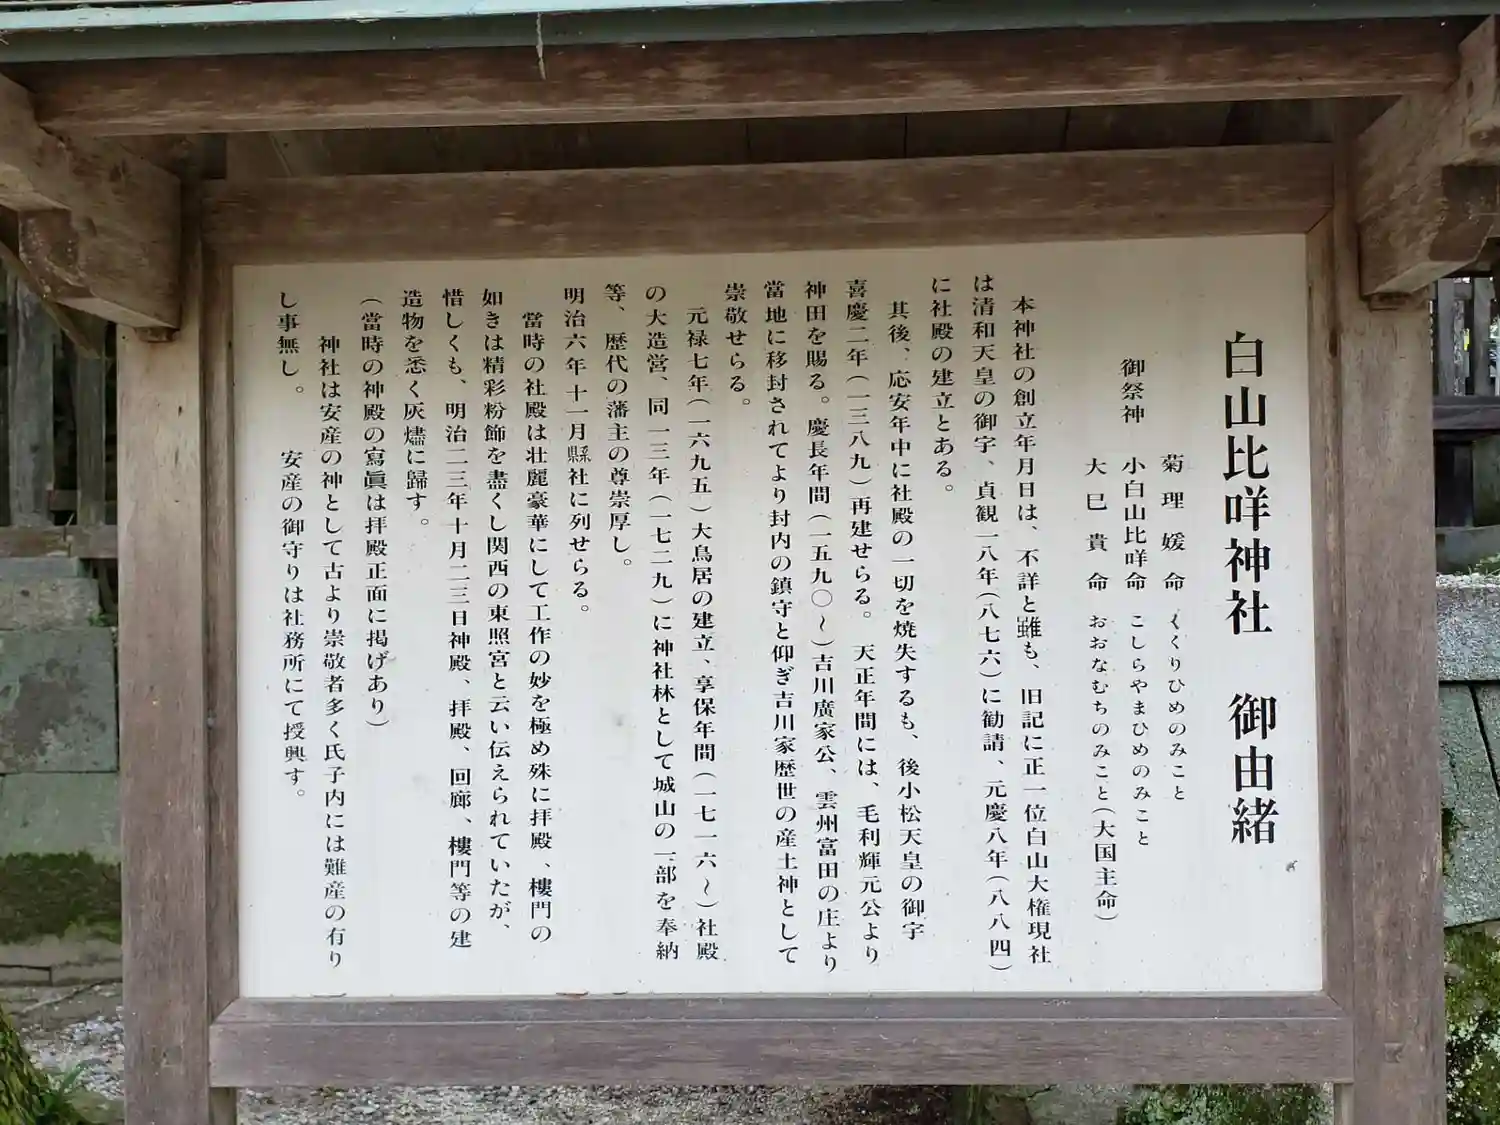 白山比咩神社　御由緒
菊理媛命　くくりひめのみこと
御祭神　小白山比咩命　こしらやまひめのみこと
大巳貴命　おおなむちのみこと（大国主命）
本神社の創立年月日は、不詳と雖も、旧記に正一位白山大権現社
は清和天皇の御宇、貞観一八年（八七六）に勧請、元慶八年（八八四）
に社殿の建立とある。
其後、応安年中に社殿の一切を焼失するも、後小松天皇の御宇
喜慶二年（一三八九）再建せらる。天正年間には、毛利輝元公より
神田を賜る。慶長年間（一五九〇～）吉川廣家公、雲州富田の庄より
當地に移封されてより封内の鎮守と仰ぎ吉川家歴世の産土神として
崇敬せらる。
元禄七年（一六九五）大鳥居の建立、享保年間（一七一六～）社殿
の大造営、同一三年（一七二九）に神社林として城山の一部を奉納
等、歴代の藩主の尊崇厚し。
明治六年十一月縣社に列せらる。
當時の社殿は壮麗豪華にして工作の妙を極め殊に拝殿、樓門の
如きは精彩粉飾を盡くし関西の東照宮と云い伝えられていたが、
惜しくも、明治二三年十月二三日神殿、拝殿、回廊、樓門等の建
造物を悉く灰燼に歸す。
（當時の神殿の寫眞は拝殿正面に掲げあり）
神社は安産の神として古より崇敬者多く氏子内には難産の有り
し事無し。　安産の御守りは社務所にて授興す。